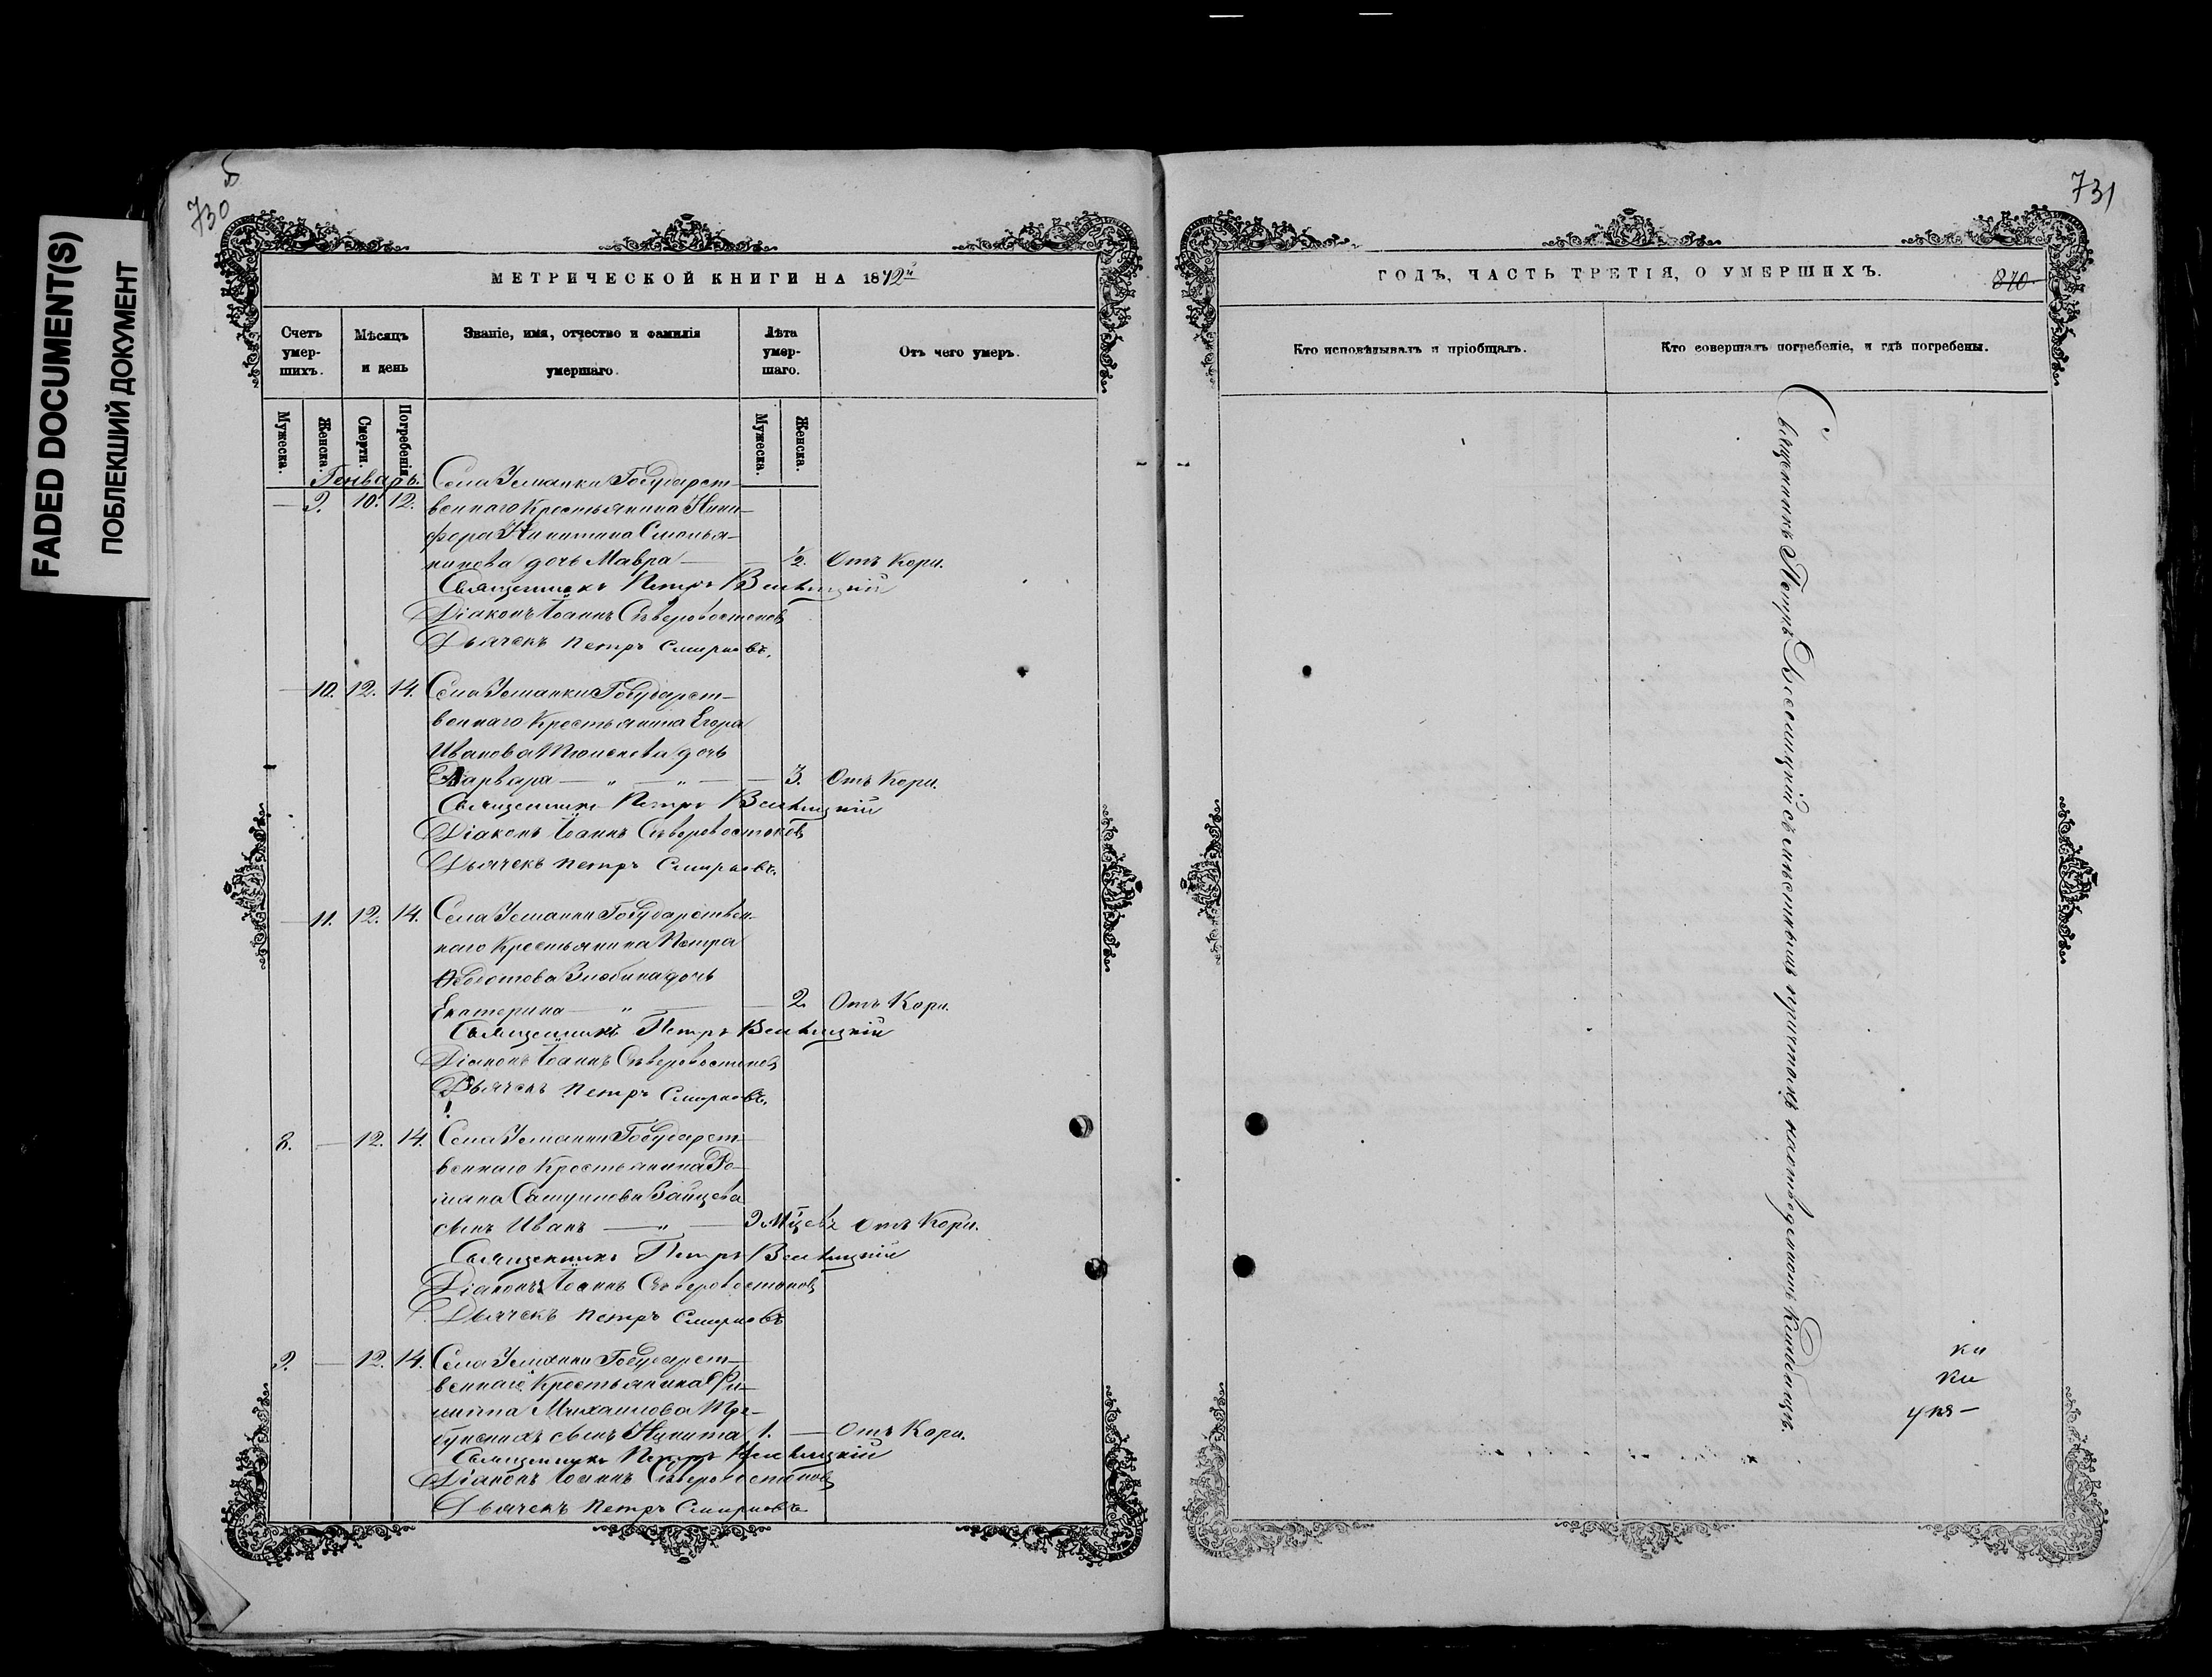 FADED DOCUMENT(S)
ПОБЛЕКШИЙ ДОКУМЕНТ
730
731
МЕТРИЧЕСКОЙ КНИГИ НА 1872й
Счетъ умер-шихъ.
Мѣсяцъ и день
Званіе, имя, отчество и фамилія умершаго.
Лѣта умер-шаго.
Отъ чего умеръ.
Мужеска.
Женска.
Смерти.
Погребенія.
Мужеска.
Женска.
Генварь.
Села Усманки Государст-
9. 10. 12. веннаго Крестьянина Ники-
фора Никитина Смолья-
нинова дочь Мавра — ½. Отъ Кори.
Священникъ Петръ
Діаконъ Іоаннъ Сѣверовостоковъ
Дьячекъ Петръ Смирновъ.
10. 12. 14. Села Усманки Государст-
веннаго Крестьянина Егора
Иванова дочь
Варвара — „ — „ — 3. Отъ Кори.
Священникъ Петръ
Діаконъ Іоаннъ Сѣверовостоковъ
Дьячекъ Петръ Смирновъ.
11. 12. 14. Села Усманки Государствен-
наго Крестьянина Петра
Ѳедотова Злобина дочь
Екатерина — „ — 2. Отъ Кори.
Священникъ Петръ
Діаконъ Іоаннъ Сѣверовостоковъ
Дьячекъ Петръ Смирновъ.
8. — 12. 14. Села Усманки Государст-
веннаго Крестьянина Ро-
мана Зайцева
сынъ Иванъ — „ — 9 Мцевъ Отъ Кори.
Священникъ Петръ
Діаконъ Іоаннъ Сѣверовостоковъ
Дьячекъ Петръ Смирновъ
9. — 12. 14. Села Усманки Государст-
веннаго Крестьянина Фи-
липпа Михаилова
сынъ Никита 1. — Отъ Кори.
Священникъ Петръ
Діаконъ Іоаннъ Сѣверовостоковъ
Дьячекъ Петръ Смирновъ
ГОДЪ, ЧАСТЬ ТРЕТІЯ, О УМЕРШИХЪ.
870
Кто исповѣдывалъ и пріобщалъ.
Кто совершалъ погребеніе, и гдѣ погребены.
Священникъ Петръ съ мѣстнымъ причтомъ на отведенномъ Кладбищѣ.
ки
ки